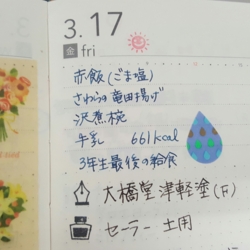 3.
3. 17
金 fri
赤飯(ごま塩)
さわらの竜田揚げ
沢煮椀
牛乳 661kcal
3年生最後の給食
大橋堂津軽塗(F)
セーラー 土用